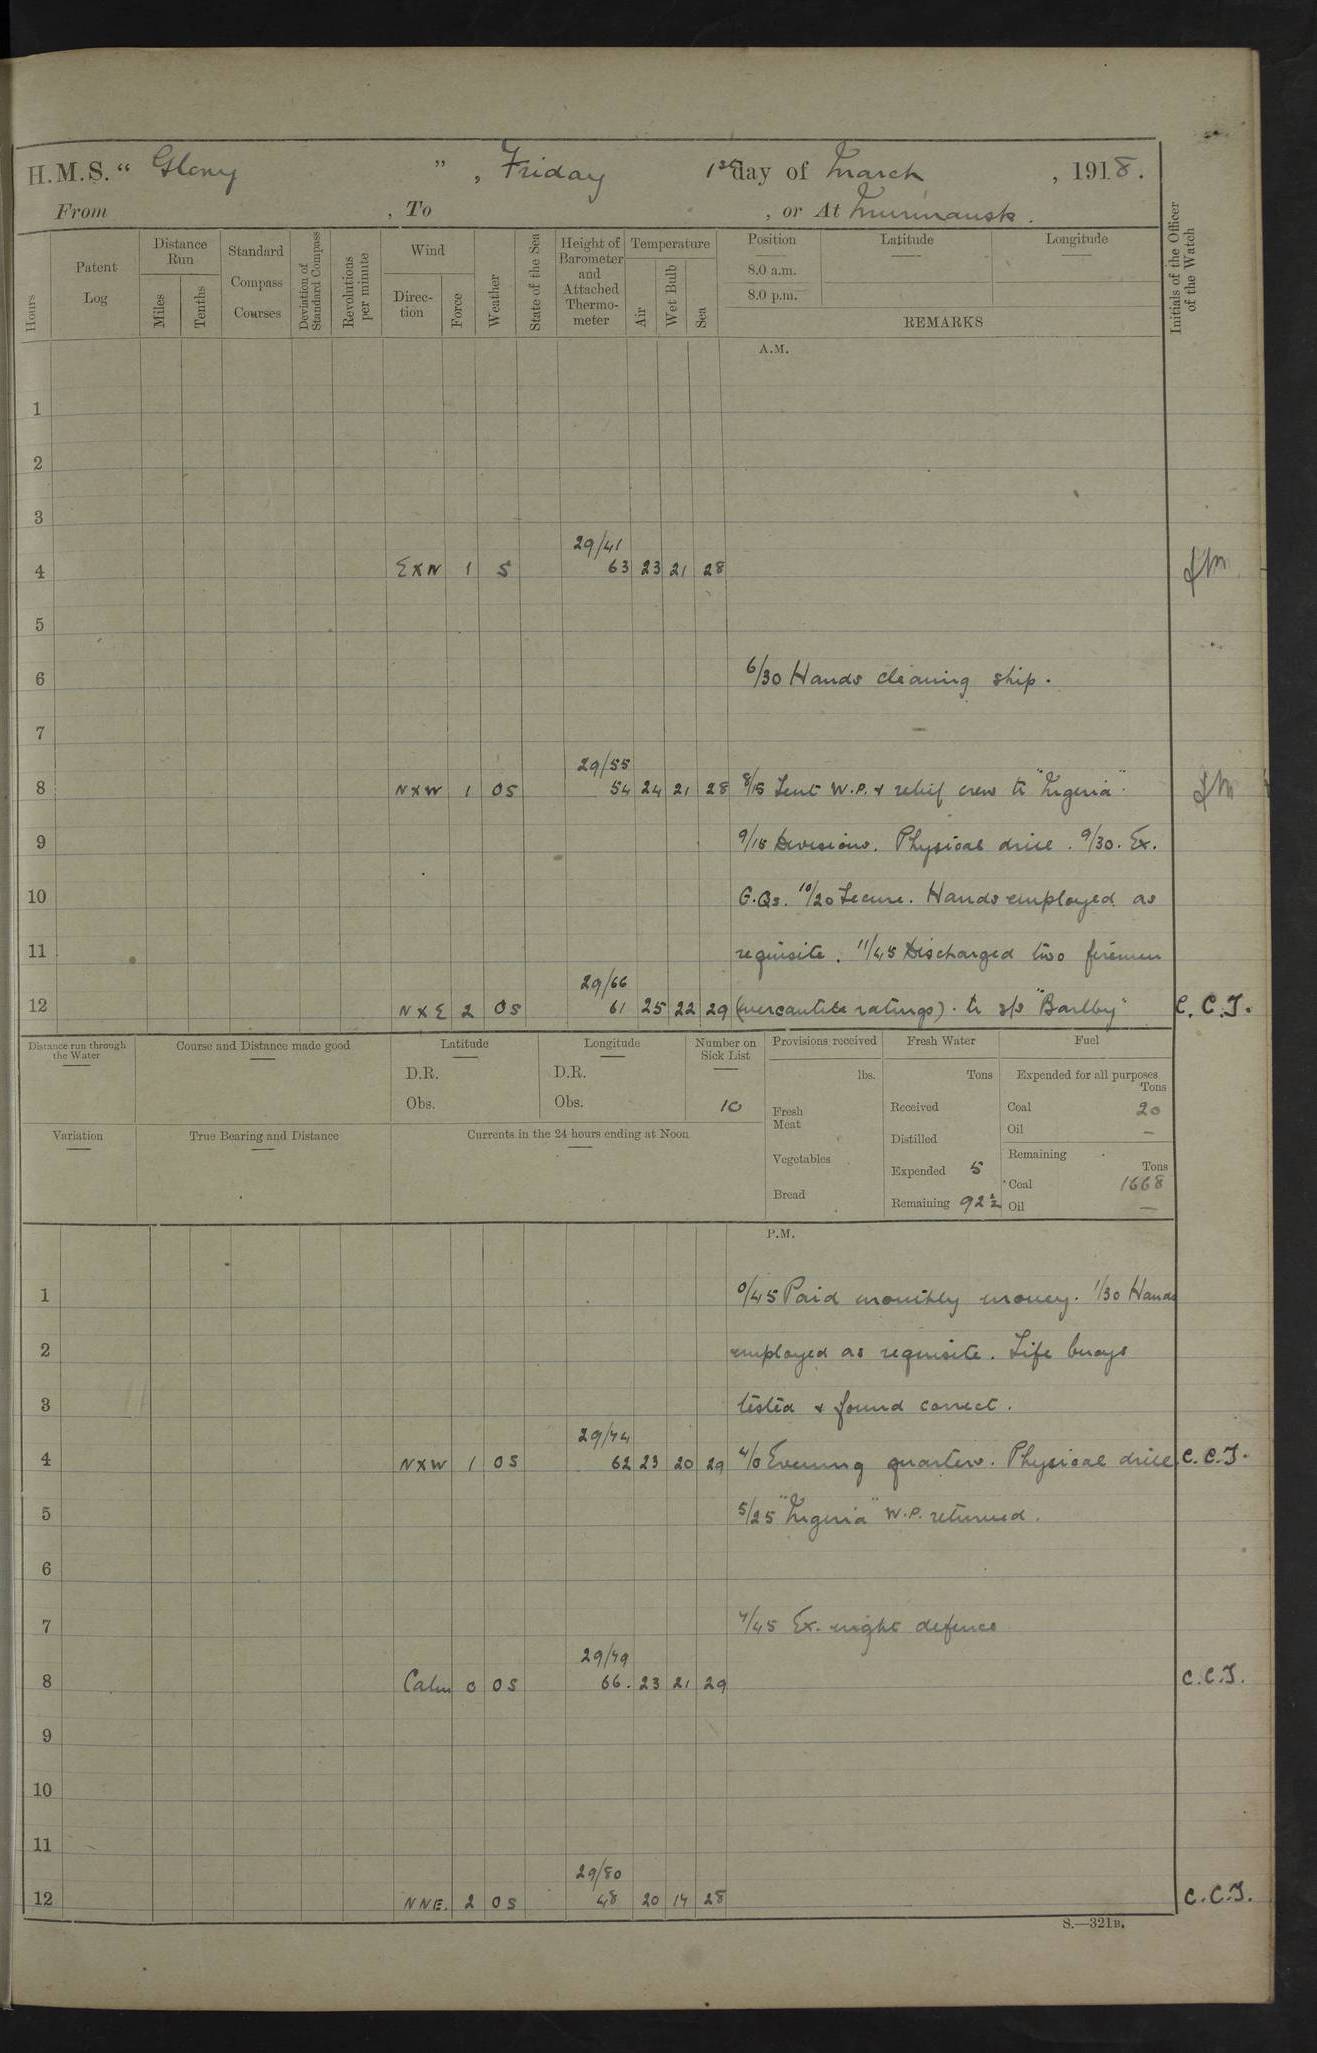 H.M.S. “ Glory ” , Friday 1st day of March , 1918.
From , To , or At Murmansk.
Hours
Patent Log
Distance Run
Miles
Tenths
Standard Compass Courses
Deviation of Standard Compass
Revolutions per minute
Wind
Direction
Force
Weather
State of the Sea
Height of Barometer and Attached Thermometer
Temperature
Air
Wet Bulb
Sea
Position
8.0 a.m.
8.0 p.m.
Latitude
Longitude
REMARKS
Initials of the Officer of the Watch
A.M.
1
2
3
29/41
4 EXN 1 S 63 23 21 28
5
6 6/30 Hands cleaning ship.
7
29/55
8 NXW 1 OS 54 24 21 28 8/15 Sent W.P. & relief crew to "Nigeria".
9 9/15 Divisions. Physical drill. 9/30. Ex.
10 G.Qs. 10/20 Secure. Hands employed as
11 requisite. 11/45 Discharged two firemen
29/66
12 NXE 2 OS 61 25 22 29 (mercantile ratings). to s/s "Barlby" C.C.J.
Distance run through the Water
Course and Distance made good
Latitude
D.R.
Obs.
Longitude
D.R.
Obs.
Number on Sick List
10
Provisions received
lbs.
Fresh Meat
Vegetables
Bread
Fresh Water
Tons
Received
Distilled
Expended 5
Remaining 92 1/2
Fuel
Expended for all purposes
Tons
Coal 20
Oil —
Remaining
Tons
Coal 1668
Oil —
Variation
True Bearing and Distance
Currents in the 24 hours ending at Noon
P.M.
1 0/45 Paid monthly money. 1/30 Hands
2 employed as requisite. Life buoys
3 tested & found correct.
29/74
4 NXW 1 OS 62 23 20 29 4/0 Evening quarters. Physical drill C.C.J.
5 5/25 "Nigeria" W.P. returned.
6
7 7/45 Ex. night defence
29/79
8 Calm 0 OS 66. 23 21 29 C.C.J.
9
10
11
29/80
12 NNE. 2 OS 48 20 17 28 C.C.J.
S.—321B.